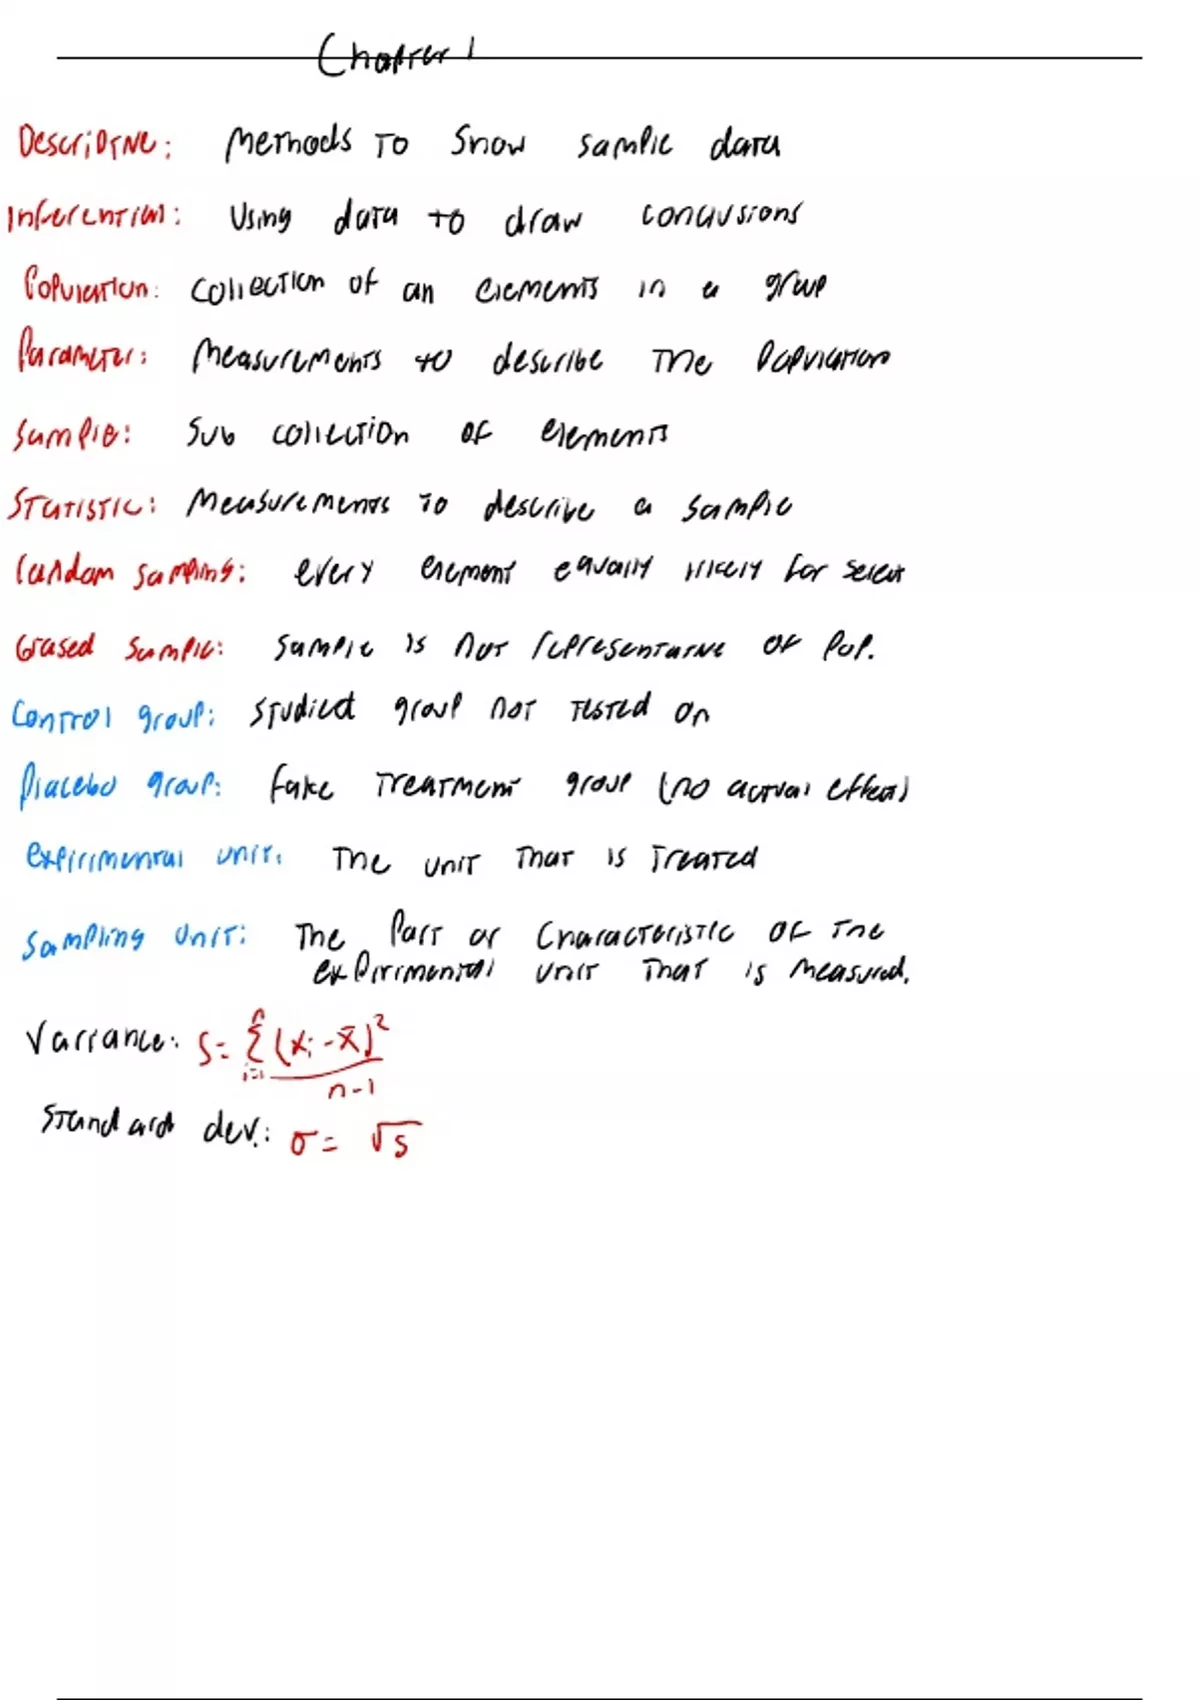 Chapter 1
Descriptive: Methods to show sample data
Inferential: Using data to draw conclusions
Population: Collection of all elements in a group
Parameter: Measurements to describe the population
Sample: Sub collection of elements
Statistic: Measurements to describe a sample
random sampling: every element equally likely for select
Biased sample: sample is not representative of pop.
Control group: Studied group not tested on
Placebo group: fake treatment group (no actual effect)
expirimental unit: The unit that is treated
Sampling unit: The part or characteristic of the
expirimental unit that is measured.
Variance: S = n Σ i=1 (xi - x̄)² / n-1
Standard dev.: σ = √s